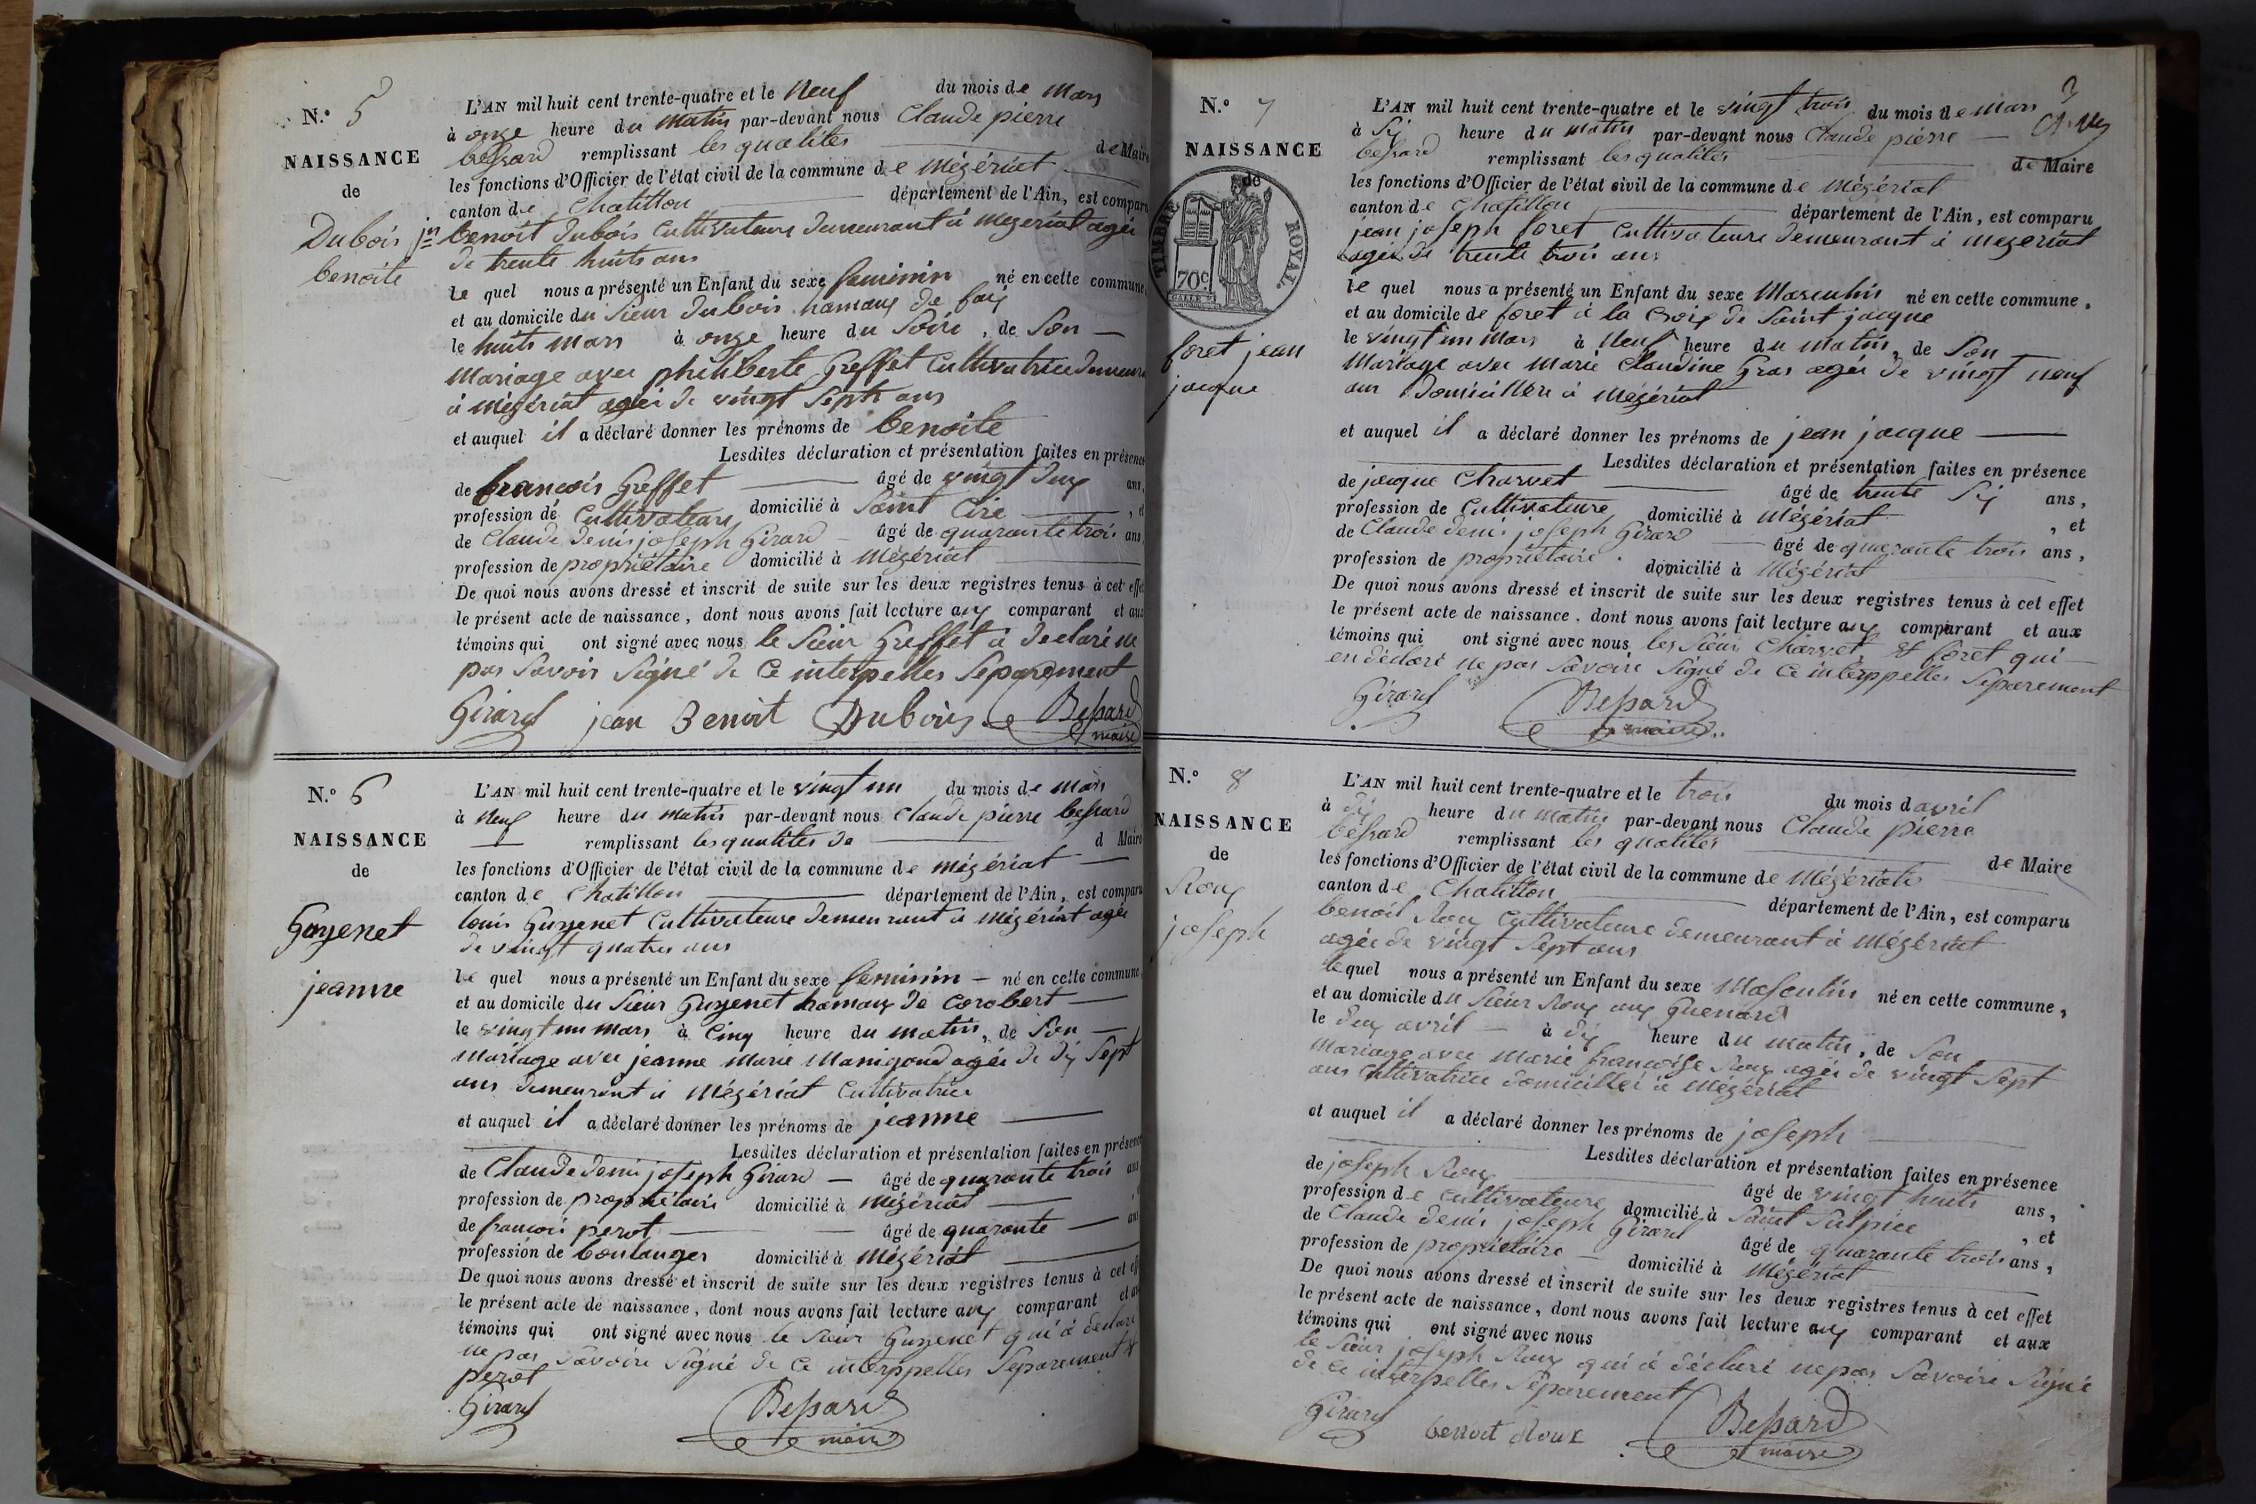 N.° 5
NAISSANCE
de
Dubois jn
benoite
L'AN mil huit cent trente-quatre et le Neuf du mois de Mars
à onze heure du Matin par-devant nous Claude pierre
bessard remplissant les qualités de Maire
les fonctions d'Officier de l'état civil de la commune de Mézériat
canton de Chatillon département de l'Ain, est comparu
benoit Dubois Cultivateur Demeurant à Mezeriat agée
de trente huits ans
le quel nous a présenté un Enfant du sexe feminin né en cette commune,
et au domicile du Sieur Dubois hamaux de faÿ
le huits mars à onze heure du Soire, de Son
Mariage avec philiberte Greffet Cultivatrice Demeur
à Mézériat agée de vingt Septs ans
et auquel il a déclaré donner les prénoms de benoite
Lesdites déclaration et présentation faites en présence
de francois Greffet âgé de vingt deux ans,
profession de Cultivateur domicilié à Saint Cire, et
de Claude denis joseph Girard âgé de quarante trois ans,
profession de propriétaire domicilié à Mézériat
De quoi nous avons dressé et inscrit de suite sur les deux registres tenus à cet effet
le présent acte de naissance, dont nous avons fait lecture aux comparant et aux
témoins qui ont signé avec nous le Sieur Greffet à declaré ne
pas Savoir Signé de Ce interpelles Separement
Girard jean Benoit Dubois Bessard
maire
N.° 6
NAISSANCE
de
Guyenet
jeanne
L'AN mil huit cent trente-quatre et le vingt un du mois de Mars
à Neuf heure du Matin par-devant nous Claude pierre bessard
remplissant les qualités de d Maire
les fonctions d'Officier de l'état civil de la commune de Mézériat
canton de Chatillon département de l'Ain, est comparu
louis Guyenet Cultivateure Demeurant à Mézériat agée
de vingt quatres ans
le quel nous a présenté un Enfant du sexe feminin né en cette commune,
et au domicile du Sieur Guyenet hamaux de Corobert
le vingt un mars à Cinq heure du matin, de Son
Mariage avec jeanne Marie Manigand agée de dix Sept
ans demeurant à Mézériat Cultivatrice
et auquel il a déclaré donner les prénoms de jeanne
Lesdites déclaration et présentation faites en présence
de Claude denis joseph Girard âgé de quarante trois ans
profession de propriétaire domicilié à Mézériat
de francois perot âgé de quarante ans
profession de boulanger domicilié à Mézériat
De quoi nous avons dressé et inscrit de suite sur les deux registres tenus à cet eff
le présent acte de naissance, dont nous avons fait lecture aux comparant et aux
témoins qui ont signé avec nous le Sieur Guyenet qui à declaré
ne pas Savoire Signé de Ce interppelles Separement &
perot
Girard Bessard
maire
3
N.° 7
NAISSANCE
de
TIMBRE ROYAL
70c
foret jean
jacque
L'AN mil huit cent trente-quatre et le vingt trois du mois de Mars
à Six heure du Matin par-devant nous Claude pierre
bessard remplissant les qualités de Maire
les fonctions d'Officier de l'état civil de la commune de Mézériat
canton de Chatillon département de l'Ain, est comparu
jean joseph foret Cultivateure Demeurant à Mezeriat
agée de trente trois ans
le quel nous a présenté un Enfant du sexe Masculin né en cette commune,
et au domicile de foret à la Croix de Saint jacque
le vingt un Mars à Neuf heure du matin, de Son
Mariage avec Marie Claudine Gras agée de vingt neuf
ans Domiciliée à Mézériat
et auquel il a déclaré donner les prénoms de jean jacque
Lesdites déclaration et présentation faites en présence
de jacque Charvet âgé de trente Six ans,
profession de Cultivateure domicilié à Mézériat, et
de Claude denis joseph Girard âgé de quarante trois ans,
profession de propriétaire domicilié à Mézériat
De quoi nous avons dressé et inscrit de suite sur les deux registres tenus à cet effet
le présent acte de naissance, dont nous avons fait lecture aux comparant et aux
témoins qui ont signé avec nous les Sieur Charvet & foret qui
en déclaré ne pas Savoire Signé de Ce interppelles Separement
Girard Bessard
maire
N.° 8
NAISSANCE
de
Roux
joseph
L'AN mil huit cent trente-quatre et le trois du mois d avril
à dix heure du matin par-devant nous Claude pierre
bessard remplissant les qualités de Maire
les fonctions d'Officier de l'état civil de la commune de Mézériat
canton de Chatillon département de l'Ain, est comparu
benoit Roux Cultivateure demeurant à Mézériat
agée de vingt Sept ans
le quel nous a présenté un Enfant du sexe Masculin né en cette commune,
et au domicile du Sieur Roux aux Guenard
le deux avril à dix heure du matin, de Son
Mariage avec Marie francoise Roux agée de vingt Sept
ans Cultivatrice domiciliée à Mézériat
et auquel il a déclaré donner les prénoms de joseph
Lesdites déclaration et présentation faites en présence
de joseph Roux âgé de vingt huits ans,
profession de Cultivateure domicilié à Saint Sulpice, et
de Claude denis joseph Girard âgé de quarante trois ans,
profession de propriétaire domicilié à Mézériat
De quoi nous avons dressé et inscrit de suite sur les deux registres tenus à cet effet
le présent acte de naissance, dont nous avons fait lecture aux comparant et aux
témoins qui ont signé avec nous
le Sieur joseph Roux qui à déclaré ne pas Savoire Signé
de ce interpelles Séparement
Girard benoit Roux Bessard
maire